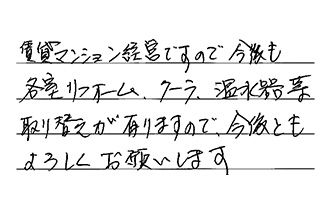 賃貸マンション経営ですので今後も
各室リフォーム、クーラ、温水器等
取り替えが有りますので、今後とも
よろしくお願いします